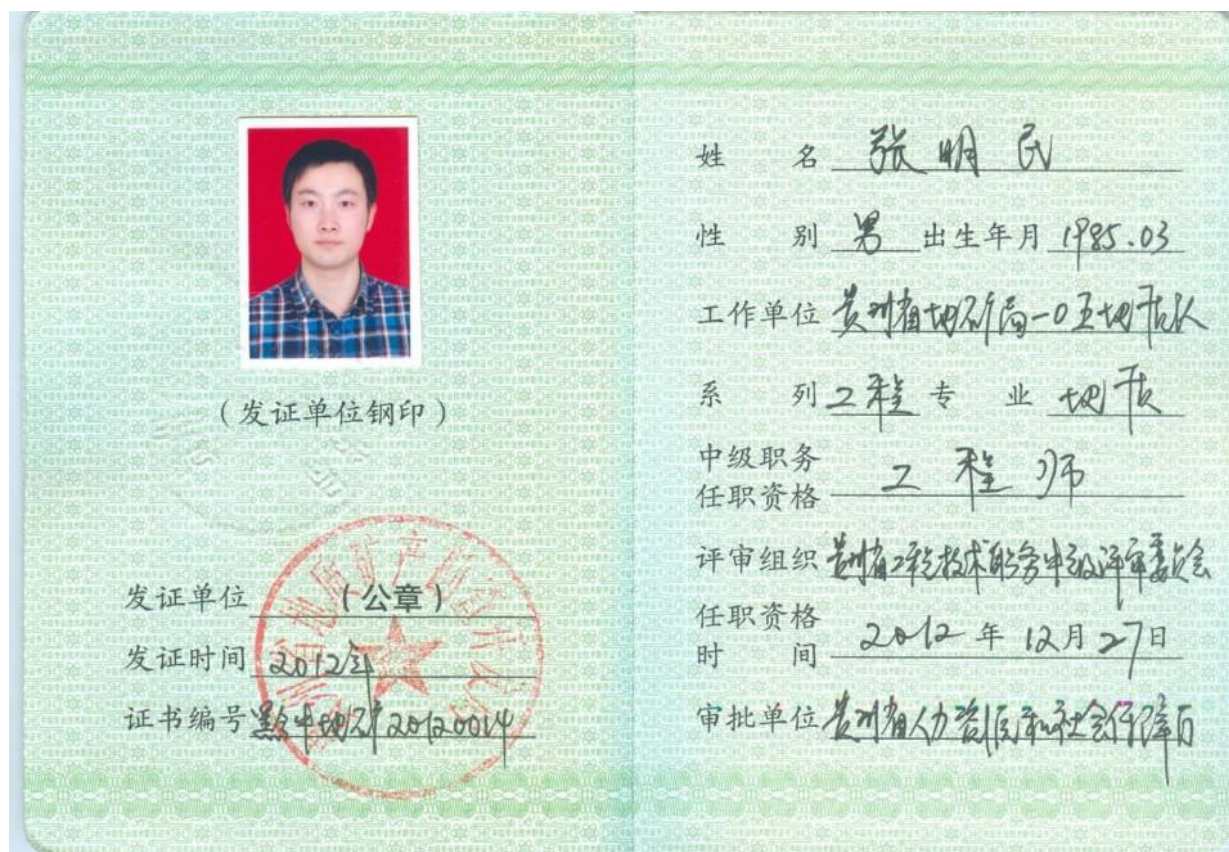 (发证单位钢印)
发证单位 (公章)
发证时间 2012年
证书编号 黔中地矿20120014
贵州省地质矿产勘查开发局
姓 名 张明民
性 别 男 出生年月 1985.03
工作单位 贵州省地矿局一0五地质队
系 列 工程 专 业 地质
中级职务
任职资格 工程师
评审组织 贵州省工程技术职务中级评审委员会
任职资格
时 间 2012年12月27日
审批单位 贵州省人力资源和社会保障厅